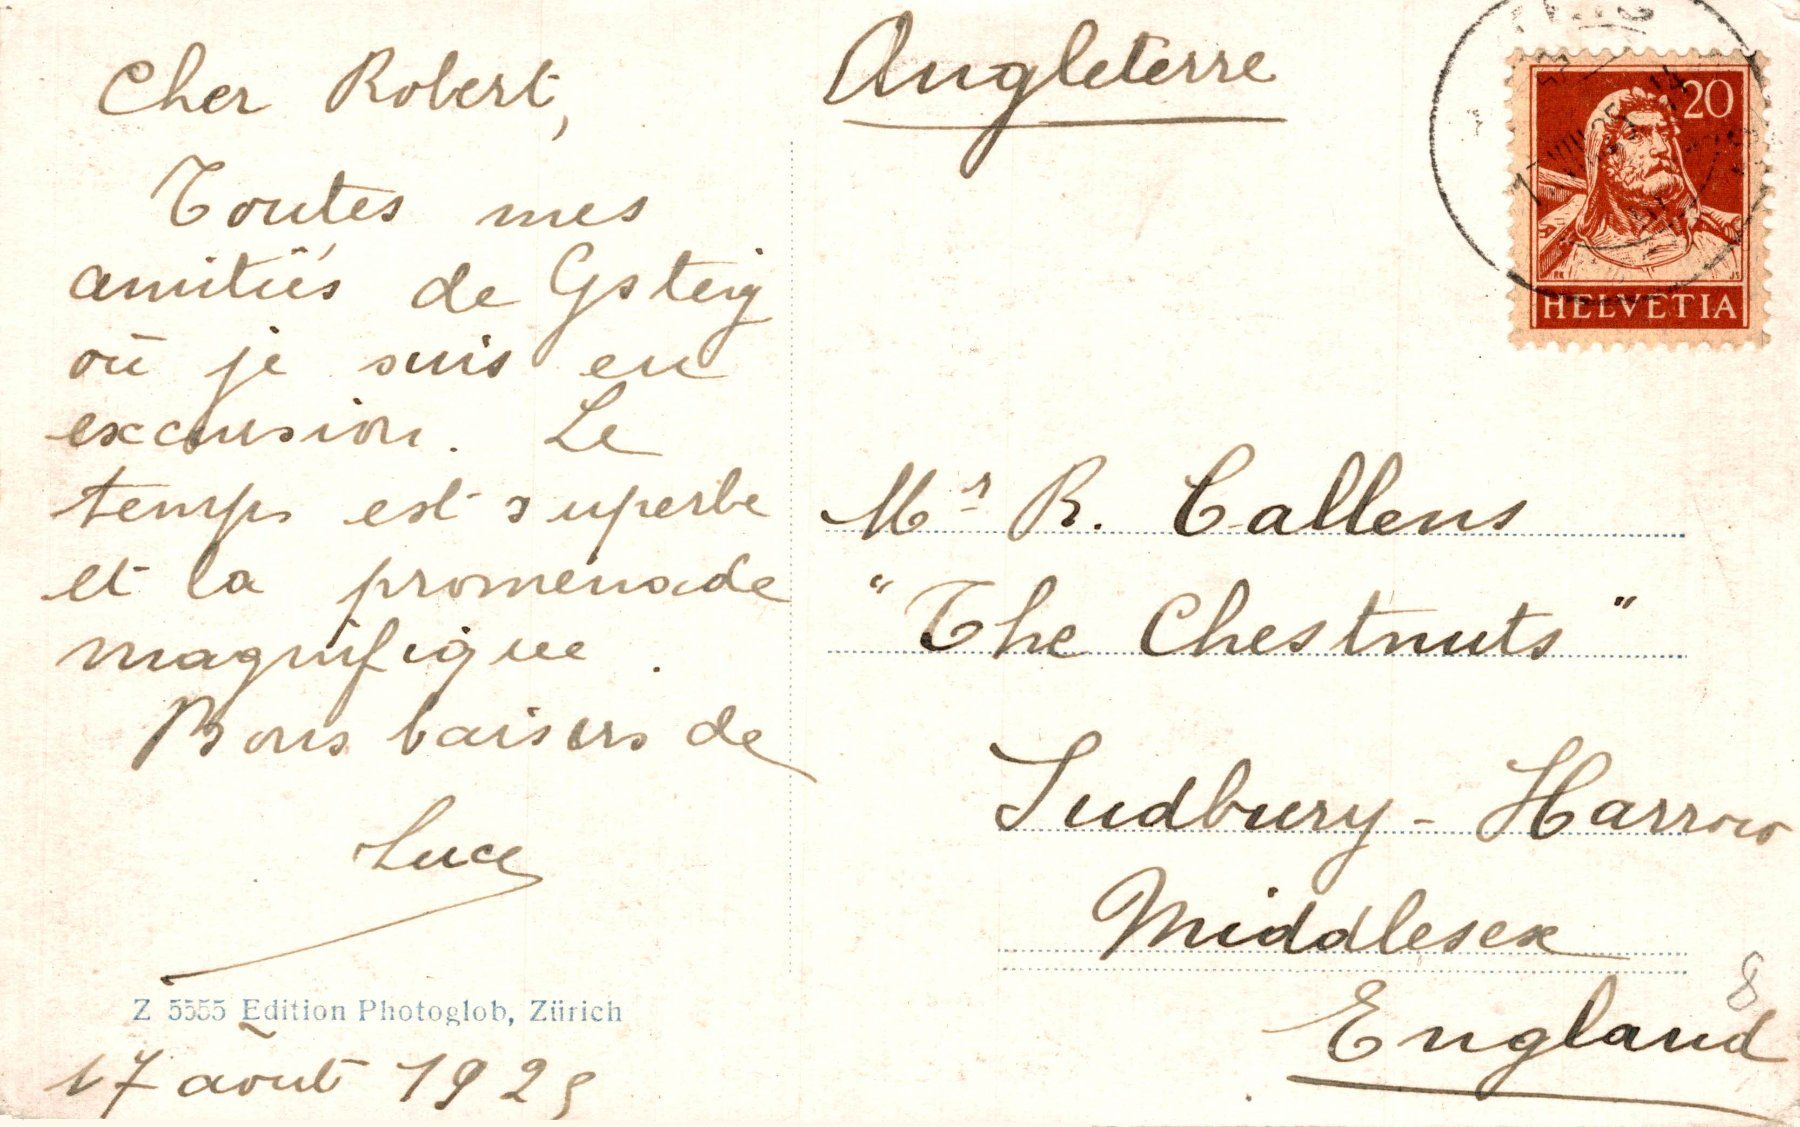 Cher Robert,
Toutes mes
amitiés de Gsteig
où je suis en
excursion. Le
temps est superbe
et la promenade
magnifique.
Bons baisers de
Luce
Z 5555 Edition Photoglob, Zürich
17 août 1925
Angleterre
20
HELVETIA
Mr R. Callens
"The Chestnuts"
Sudbury - Harrow
Middlesex
England
8